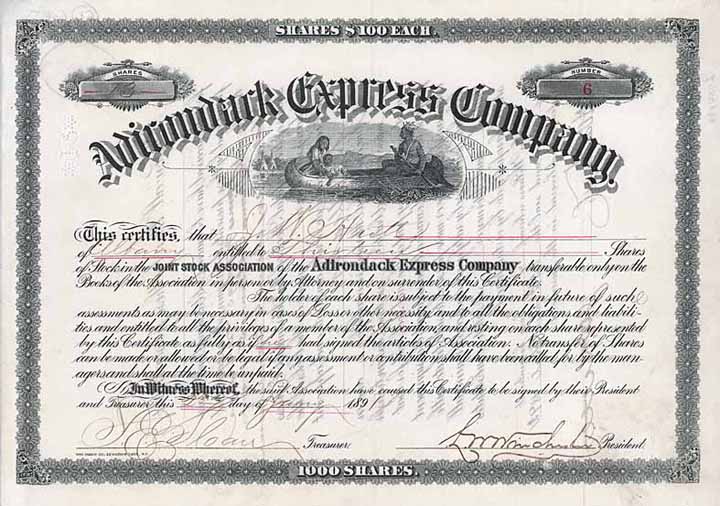 SHARES $100 EACH.
SHARES
NUMBER
6
Adirondack Express Company.
This certifies, that J. W.
of entitled to Shares
of Stock in the JOINT STOCK ASSOCIATION of the Adirondack Express Company transferable only on the
Books of the Association in person or by Attorney and on surrender of this Certificate.
The holder of each share is subject to the payment in future of such
assessments as may be necessary in cases of Loss or other necessity and to all the obligations and liabili-
ties and entitled to all the privileges of a member of the Association, and resting on each share represented
by this Certificate as fully as if he had signed the articles of Association. No transfer of Shares
can be made or allowed or be legal if any assessment or contribution shall have been called for by the man-
agers and shall at the time be unpaid.
In Witness Whereof, the said Association have caused this Certificate to be signed by their President
and Treasurer this day of 1891
Treasurer President.
1000 SHARES.